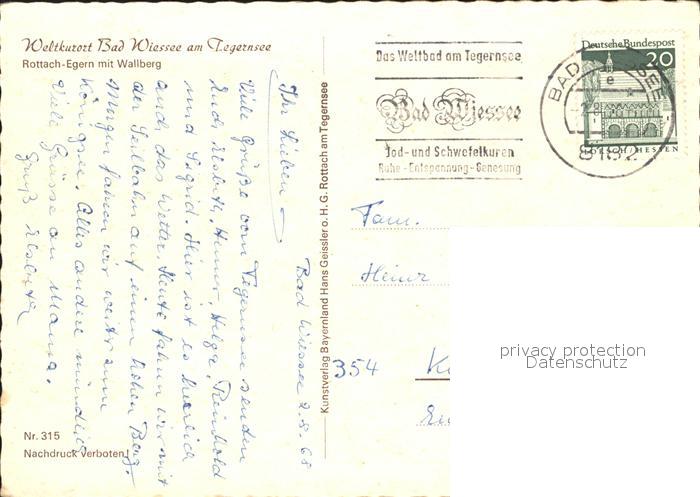 Weltkurort Bad Wiessee am Tegernsee
Rottach-Egern mit Wallberg
Bad Wiessee 2.8.68
Ihr Lieben
Viele Grüße vom Tegernsee senden
Euch Lisbeth, Helga, Reinhold
und Sigrid. Hier ist es herrlich
auch das Wetter. Heute fahren wir mit
der Seilbahn auf einen hohen Berg.
Morgen fahren wir weiter zum
Königssee. Alles andere mündlich
Viele Grüsse an Mama.
Gruß Lisbeth
Nr. 315
Nachdruck verboten!
Kunstverlag Bayernland Hans Geissler o. H. G. Rottach am Tegernsee
Das Weltbad am Tegernsee
Bad Wiessee
Jod- und Schwefelkuren
Ruhe - Entspannung - Genesung
Deutsche Bundespost
20
LORSCH/HESSEN
BAD WIESSEE
8182
Fam.
Heinr
354
privacy protection
Datenschutz